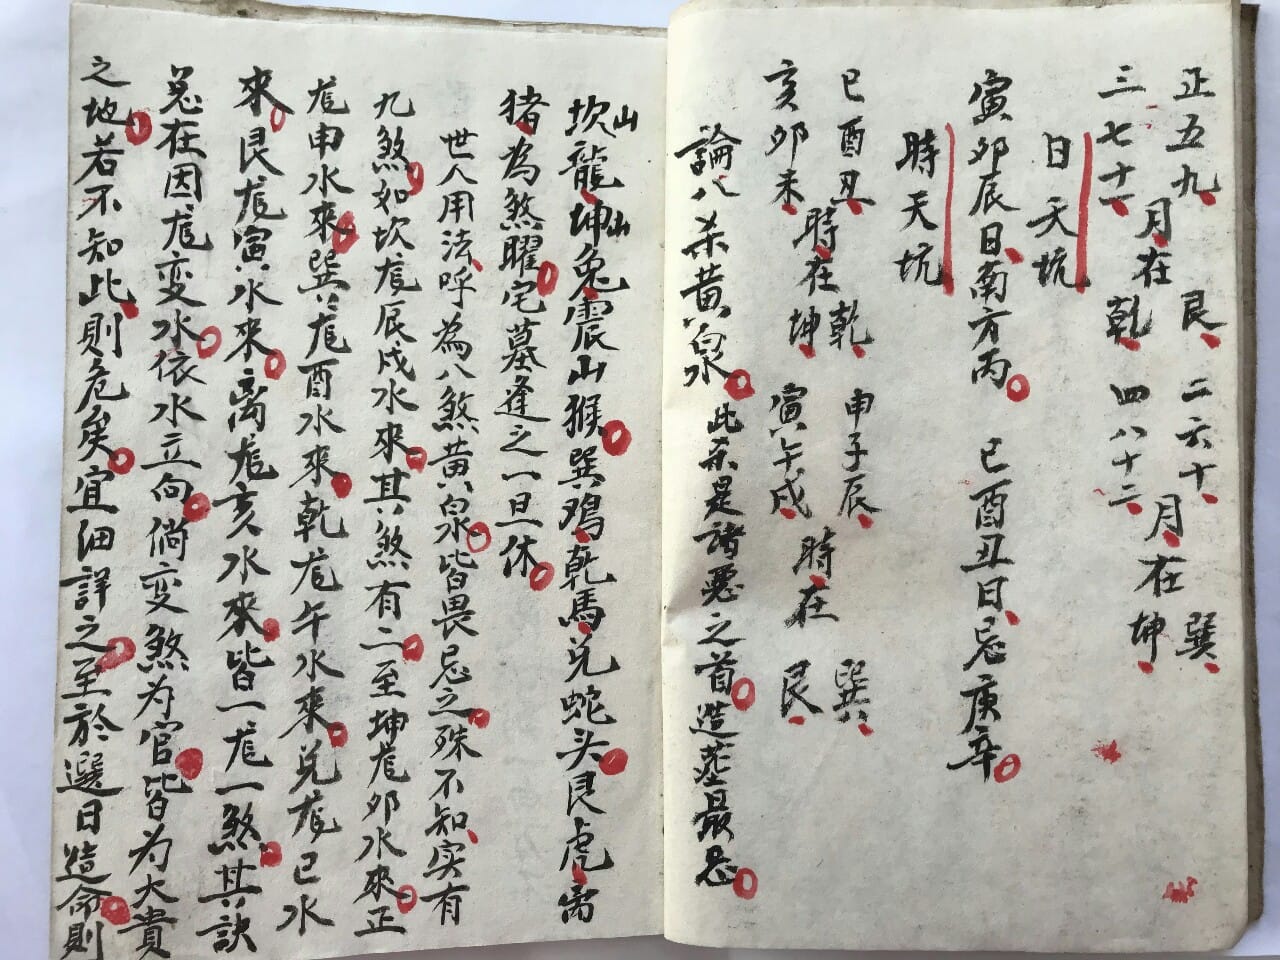 正五九
三七十一
月在
艮
乾
二六十
四八十二
月在
巽
坤
日天坑
寅卯辰日南方丙
巳酉丑日忌庚辛
時天坑
巳酉丑
亥卯未
時在
乾
坤
申子辰
寅午戌
時在
巽
艮
論八杀黄泉
此杀是諸惡之首造塟最忌
坎山龍坤山兔震山猴巽鸡乾馬兑蛇头艮虎离
猪為煞曜宅墓逢之一旦休
世人用法呼為八煞黄泉皆畏忌之殊不知实有
九煞如坎尨辰戌水來其煞有二至坤尨卯水來正
尨申水來巽尨酉水來乾尨午水來兑尨巳水
來艮尨寅水來离尨亥水來皆一尨一煞其訣
在因尨变水依水立向倘变煞为官皆为大貴
之地若不知此則危矣宜细詳之至於選日造命則